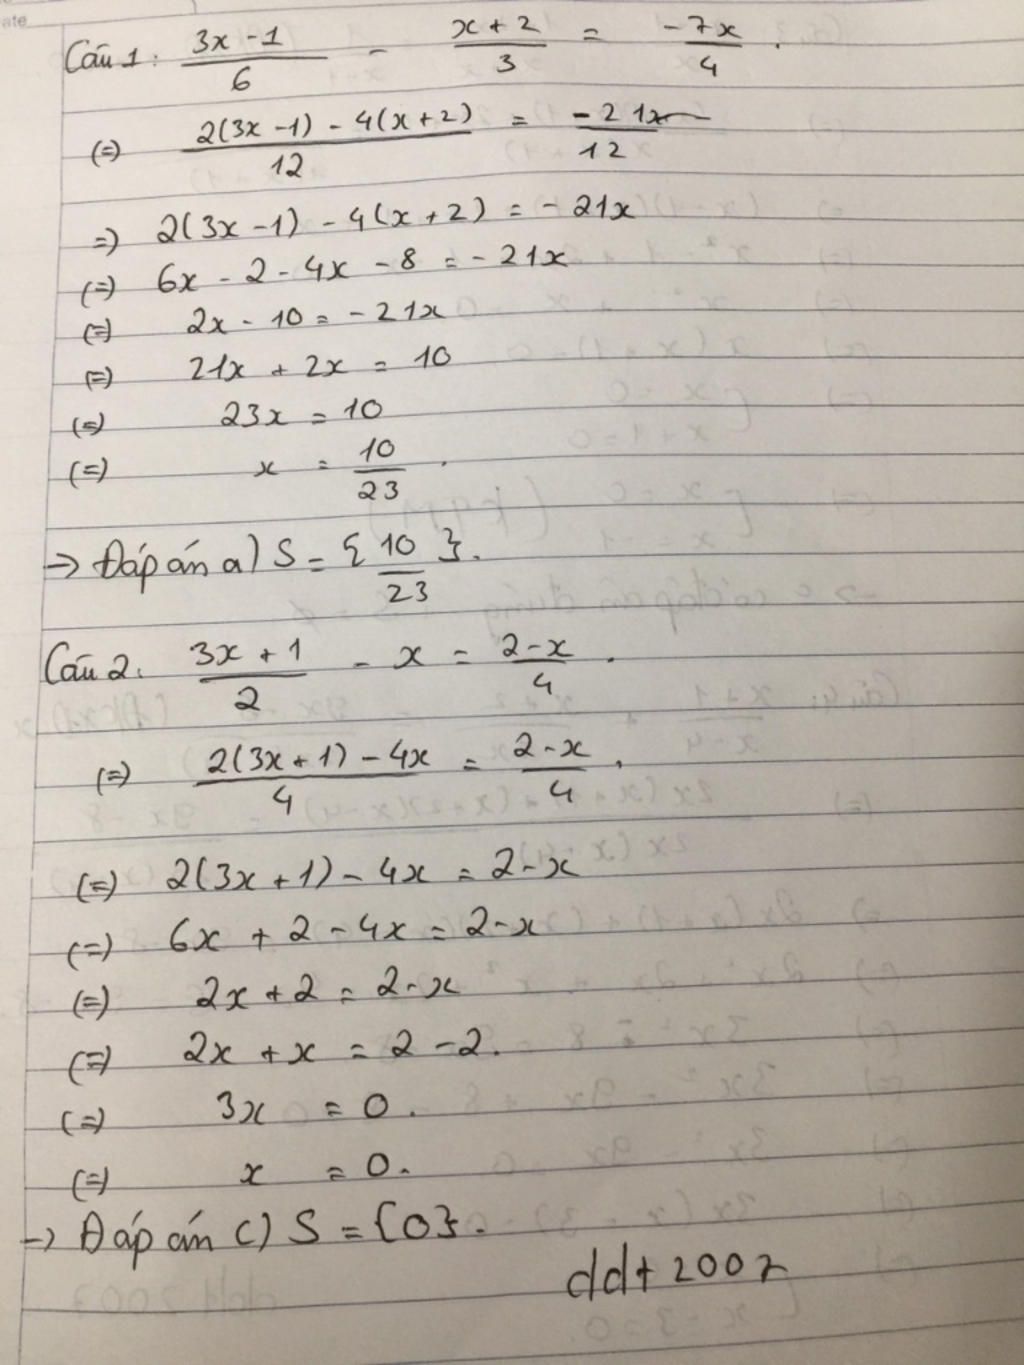 Câu 1: (3x - 1)/6 - (x + 2)/3 = (-7x)/4 .
(=) (2(3x - 1) - 4(x + 2))/12 = (-21x)/12
=) 2(3x - 1) - 4(x + 2) = -21x
(=) 6x - 2 - 4x - 8 = -21x
(=) 2x - 10 = -21x
(=) 21x + 2x = 10
(=) 23x = 10
(=) x = 10/23 .
-> Đáp án a) S = {10/23}.
Câu 2: (3x + 1)/2 - x = (2 - x)/4 .
(=) (2(3x + 1) - 4x)/4 = (2 - x)/4 .
(=) 2(3x + 1) - 4x = 2 - x
(=) 6x + 2 - 4x = 2 - x
(=) 2x + 2 = 2 - x
(=) 2x + x = 2 - 2.
(=) 3x = 0 .
(=) x = 0.
-> Đáp án C) S = {0}.
ddt 2007